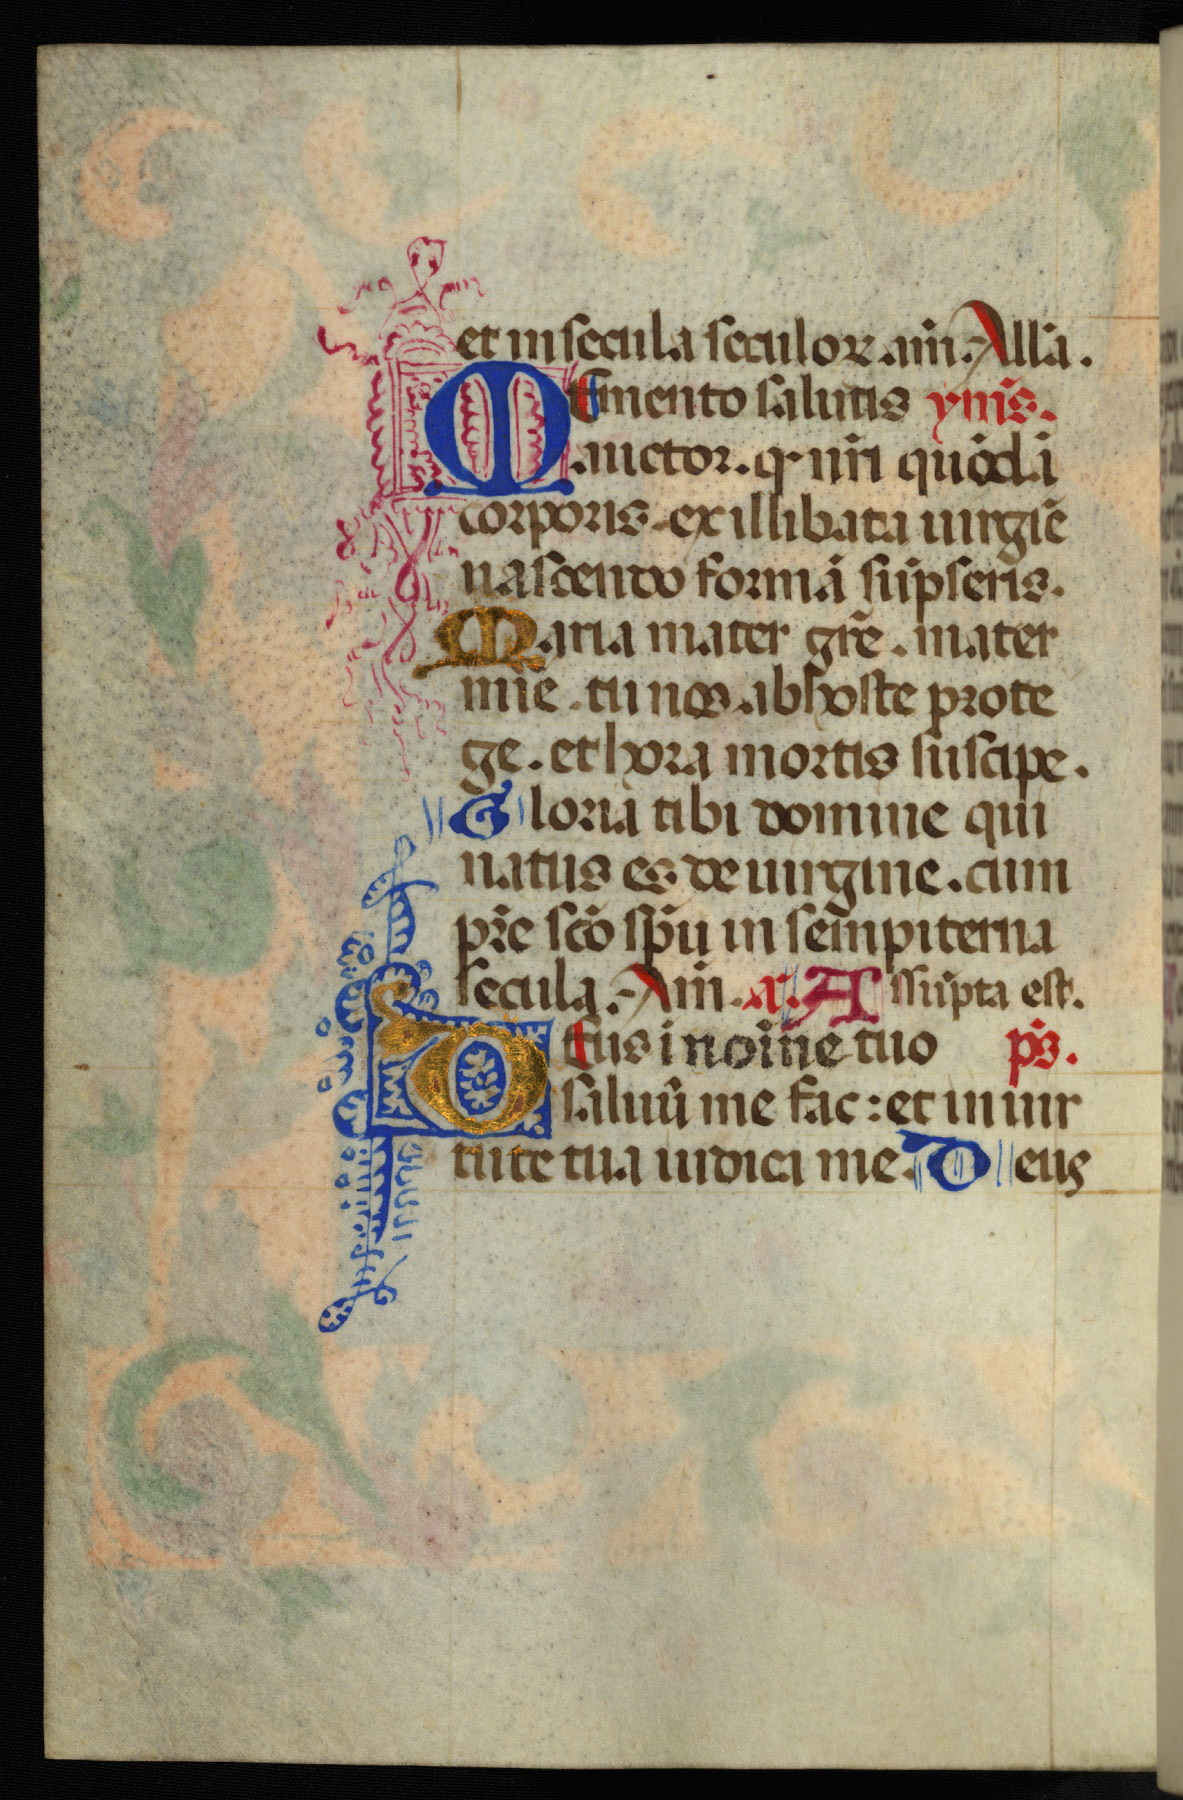 et in secula seculoꝝ. am̄. Alla̅.
Memento salutis ymn̄s.
auctor. q nr̄i quo̅da̅
corporis. ex illibata uirgi̅e
nascendo forma̅ su̅pseris.
Maria mater gr̄e. mater
mi̅e. tu nos ab hoste prote
ge. et hora mortis suscipe.
Gloria tibi domine qui
natus es de uirgine. cum
pr̄e sc̄o sp̄u in sempiterna
secula. Am̄. a. Assu̅pta est.
Deus i̅ noi̅ne tuo ps̄.
saluu̅ me fac: et in uir
tute tua iudica me. Deus